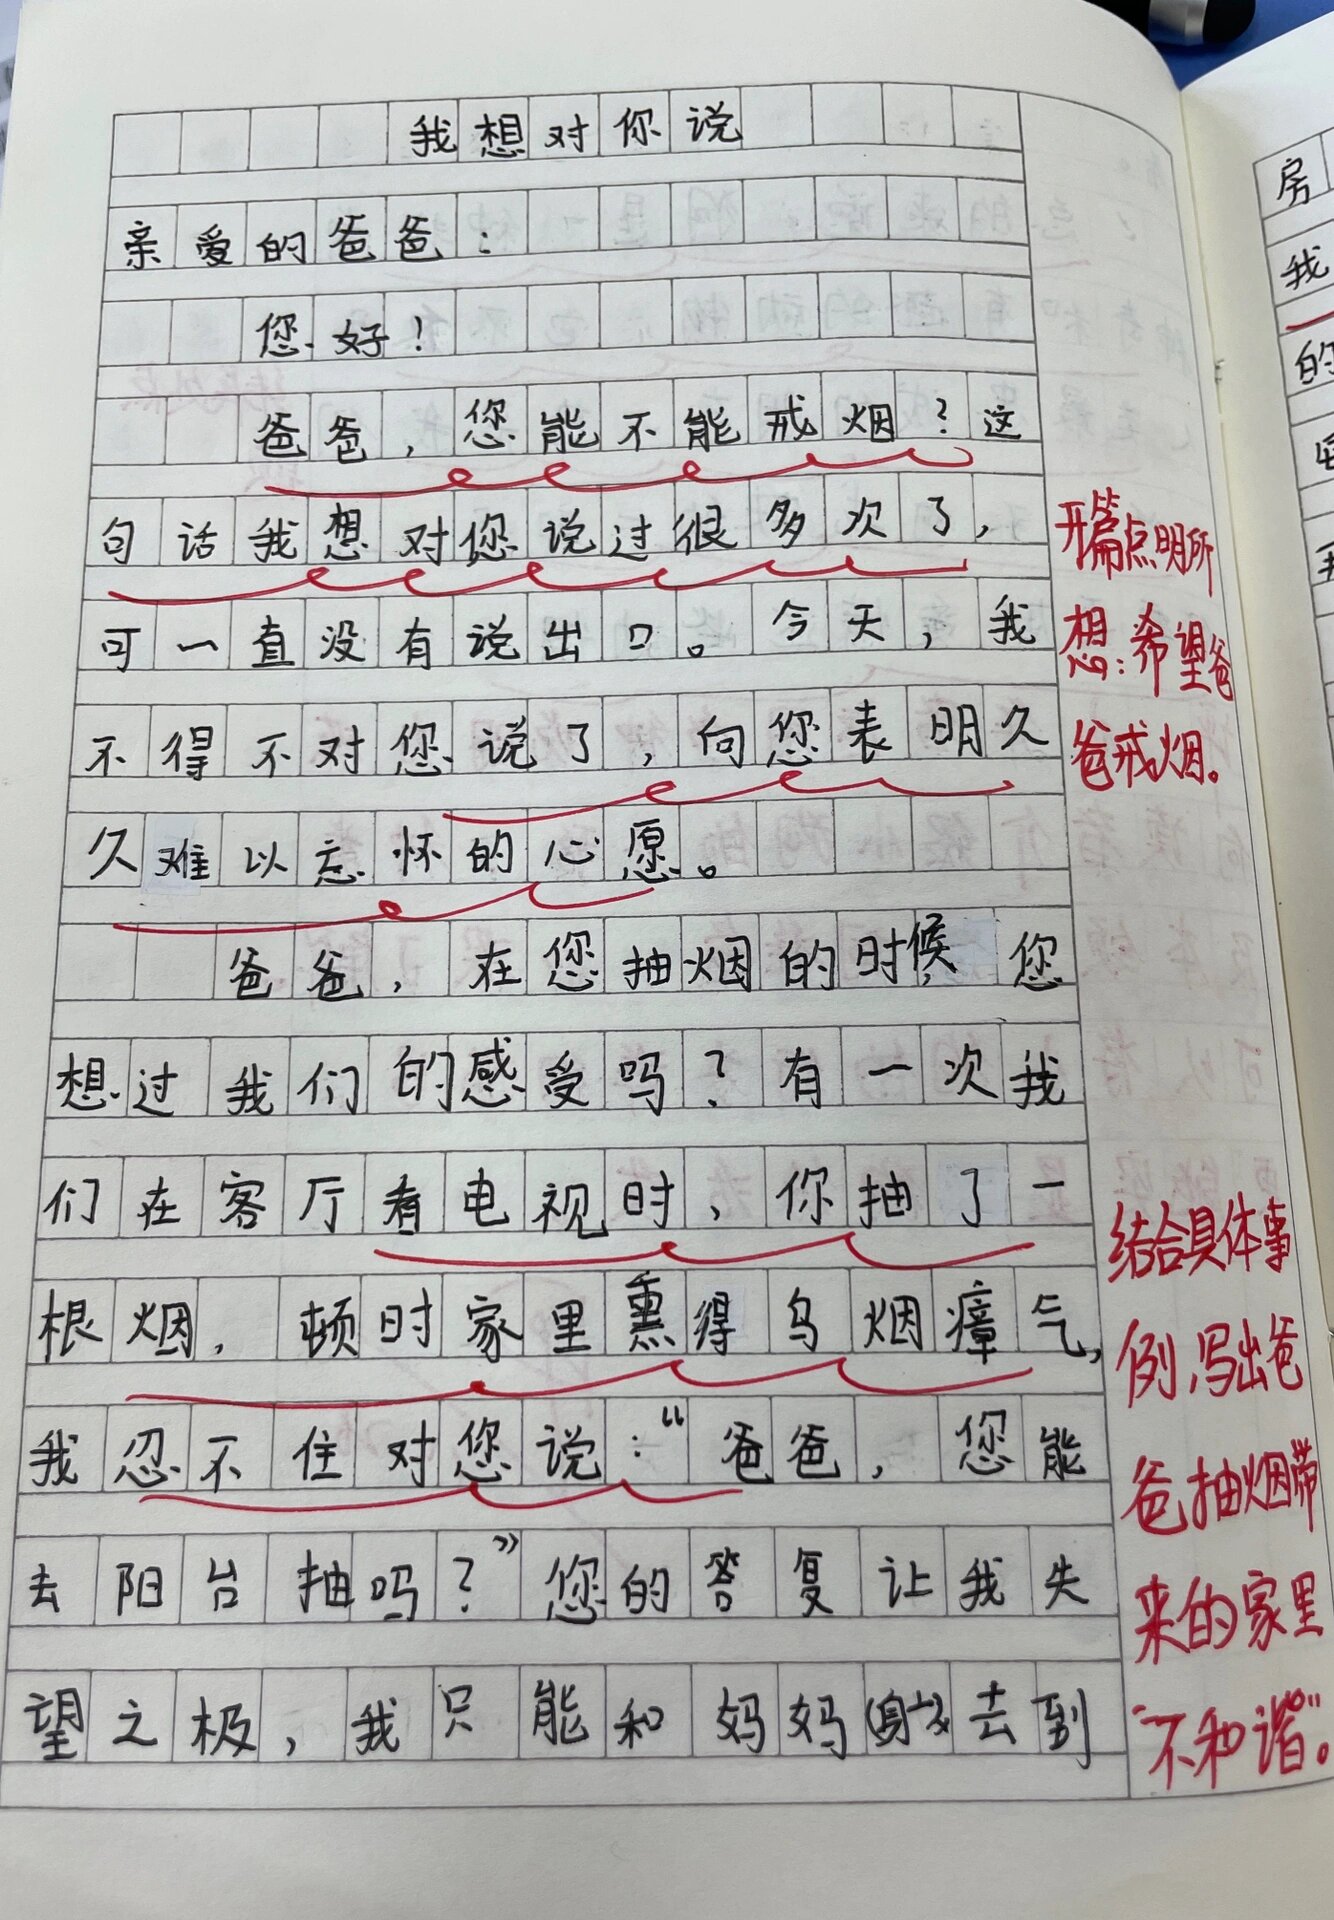 我想对你说
亲爱的爸爸：
您好！
爸爸，您能不能戒烟？这
句话我想对您说过很多次了，
可一直没有说出口。今天，我
不得不对您说了，向您表明久
久难以忘怀的心愿。
爸爸，在您抽烟的时候，您
想过我们的感受吗？有一次我
们在客厅看电视时，你抽了一
根烟，顿时家里熏得乌烟瘴气，
我忍不住对您说：“爸爸，您能
去阳台抽吗？”您的答复让我失
望之极，我只能和妈妈去到
开篇点明所
想：希望爸
爸戒烟。
结合具体事
例，写出爸
爸抽烟带
来的家里
“不和谐”。
房
我
的